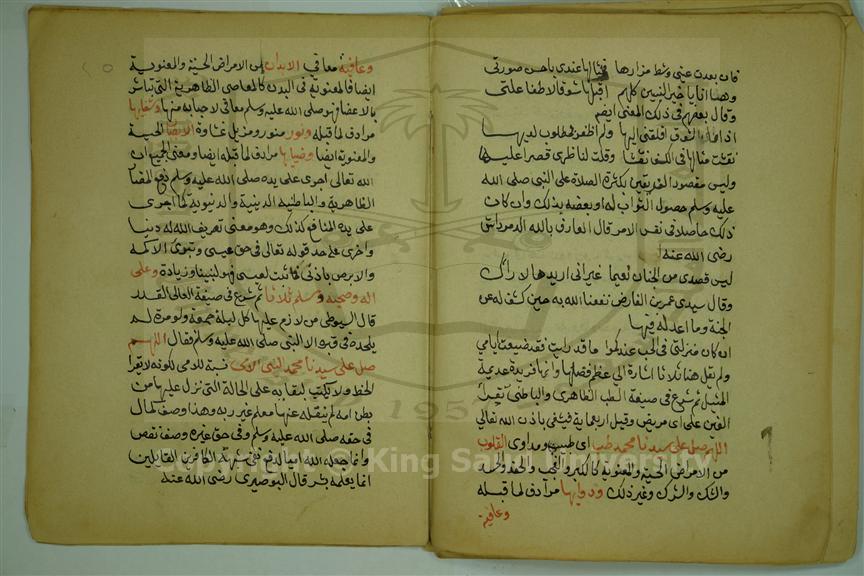 فان بعدت عني وشط مزارها فمثالها عندي باحسن صورتي
وها انا يا خير النبيين كلهم اقبلها شوقا لاطفا علتي
وقال بعضهم في ذلك المعنى ايضا
اذا ما الشوق اقلقني اليها ولم اظفر بمطلوب لديها
نقشت مثالها في الكف نقشا وقلت لناظري قصرا عليها
وليس مقصود الفريقين بكثرة الصلاة على النبي صلى الله
عليه وسلم حصول الثواب له او بعضه بذلك وان كان
ذلك حاصلا في نفس الامر قال العارف بالله الدمرداش
رضي الله عنه
ليس قصدي من الجنان نعيما غير اني اريدها لاراك
وقال سيدي عمر بن الفارض نفعنا الله به حين كشف له عن
الجنة وما اعد له فيها
ان كان منزلتي في الحب عندكموا ما قد رايت فقد ضيعت ايامي
ولم تقل هنا ثلاثا اشارة الى عظم فضلها وانها فريدة عديمة
المثيل ثم شرع في صيغة الطب الظاهري والباطني تقرا
الفين على اي مريض وقيل اربعماية فيشفى باذن الله تعالى
اللهم صل على سيدنا محمد طب اي طبيب ومداوي القلوب
من الامراض الحسية والمعنوية كالكبر والعجب والحقد والحسد
والشك والشرك وغير ذلك ودوايها مرادف لما قبله
وعافية
وعافية معافي الابدان من الامراض الحسية والمعنوية
ايضا فالمعنوية في البدن كالمعاصي الظاهرية التي تباشر
بالاعضا فهو صلى الله عليه وسلم معافي لاحبابه منها وشفايها
مرادف لما قبله ونور منور ومزيل غشاوة الابصار الحسية
والمعنوية ايضا وضيايها مرادف لما قبله ايضا ومعنى الجميع ان
الله تعالى اجرى على يده صلى الله عليه وسلم دفع المضار
الظاهرية والباطنية الدينية والدنيوية كما اجرى
على يده المنافع كذلك وهو معنى تعريف الله له دنيا
واخرى على حد قوله تعالى في حق عيسى وتبرئ الاكمه
والابرص باذني فما ثبت لعيسى فهو لنبينا وزيادة وعلى
اله وصحبه وسلم ثلاثا ثم شرع في صيغة العالي القدر
قال السيوطي من لازم عليها كل ليلة جمعة ولو مرة لم
يلحده في قبره الا النبي صلى الله عليه وسلم فقال اللهم
صل على سيدنا محمد النبي الامي نسبة للامي لكونه لا يقرا
الخط ولا يكتب لبقايه على الحالة التي نزل عليها من
بطن امه لم ينقله عنها معلم غير ربه وهذا وصف كمال
في حقه صلى الله عليه وسلم وفي حق غيره وصف نقص
وانما جعله الله اميا لدفع شبهة الكافرين القايلين
انما يعلمه بشر قال البوصيري رضي الله عنه
Copyright © King Saud University
195